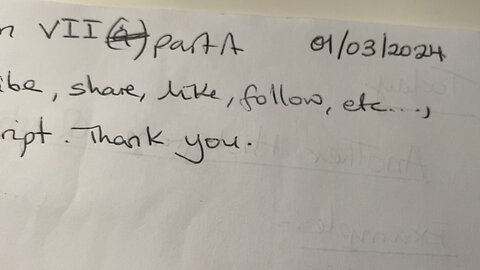 n VII (4) part A 01/03/2024
ibe, share, like, follow, etc...,
ript. Thank you.